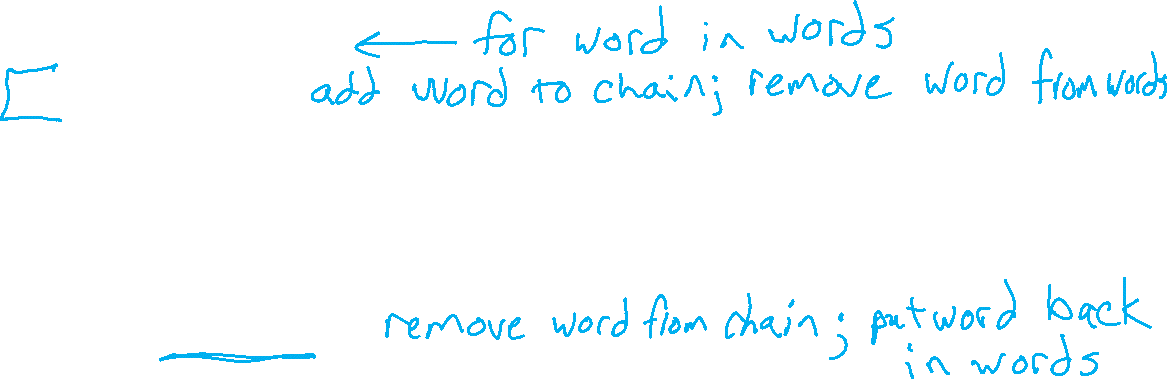 for word in words
add word to chain; remove word from words
remove word from chain; put word back
in words